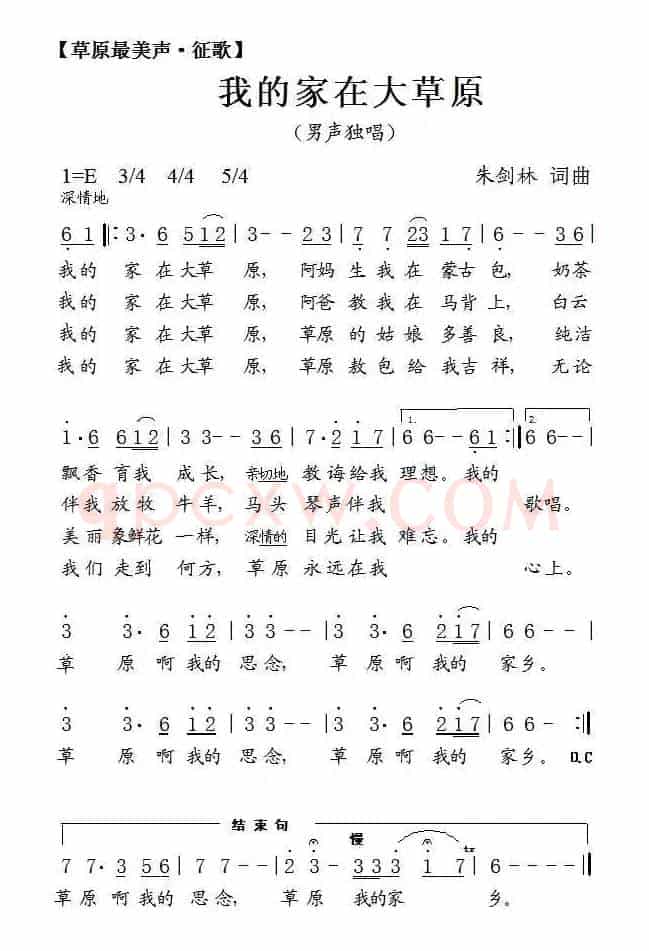 【草原最美声·征歌】
我的家在大草原
（男声独唱）
1=E 3/4 4/4 5/4 朱剑林 词曲
深情地
6 1 ‖: 3· 6 5 1 2 | 3 - - 2 3 | 7 7 2 3 1 7 | 6 - - 3 6 |
我的 家 在大草 原, 阿妈 生 我 在 蒙古 包, 奶茶
我的 家 在大草 原, 阿爸 教 我 在 马背 上, 白云
我的 家 在大草 原, 草原 的 姑 娘 多善 良, 纯洁
我的 家 在大草 原, 草原 敖 包 给 我吉 祥, 无论
1. 2.
1· 6 6 1 2 | 3 3 - - 3 6 | 7· 2 1 7 | 6 6 - - 6 1 :‖ 6 6 - - |
飘香 育我 成长, 亲切地 教 诲给我 理想。我的
伴我 放牧 牛羊, 马头 琴声伴我 歌唱。
美丽 象鲜花 一样, 深情的 目光让我 难忘。我的
我们 走到 何方, 草原 永远在我 心上。
3 3· 6 1 2 | 3 3 - - | 3 3· 6 2 1 7 | 6 6 - - |
草 原啊我的 思念, 草 原啊 我的 家乡。
3 3· 6 1 2 | 3 3 - - | 3 3· 6 2 1 7 | 6 6 - - :‖
草 原啊我的 思念, 草 原啊 我的 家乡。 D.C
结束句 慢
7 7· 3 5 6 | 5 - - - | 2 3 - 3 3 3 1 7 | 6 - - - - ‖
草原啊我的 思念, 草 原 我的家 乡。
qpcxw.COM